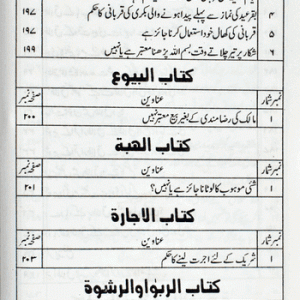 ۴ بقرعید کی نماز سے پہلے پیدا ہونے والی بکری کی قربانی کا حکم ۱۹۷
۵ قربانی کی کھال خود استعمال کرنا جائز ہے ۱۹۷
۶ شکار پر تیر چلاتے وقت بسم اللہ پڑھنا معتبر ہے یا نہیں ۱۹۹
کتاب البیوع
نمبر شمار عناوین صفحہ نمبر
۱ مالک کی رضامندی کے بغیر بیع معتبر نہیں ۲۰۰
کتاب الھبة
نمبر شمار عناوین صفحہ نمبر
۱ شئی موہوب کا لوٹانا جائز ہے یا نہیں؟ ۲۰۱
کتاب الاجارة
نمبر شمار عناوین صفحہ نمبر
۱ شریک کے لئے اجرت لینے کا حکم ۲۰۳
کتاب الربٰوا والرشوة